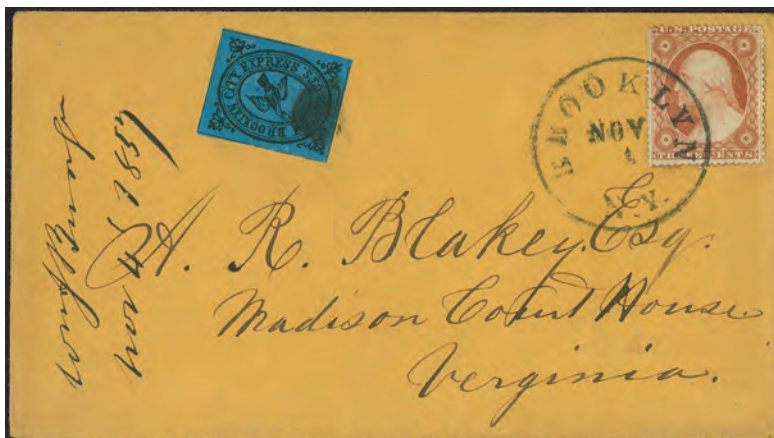 BROOKLYN CITY EXPRESS POST
U.S. POSTAGE
THREE CENTS
BROOKLYN
NOV
N.Y.
A. R. Blakey. Esq.
Madison Court House
Verginia.
1857